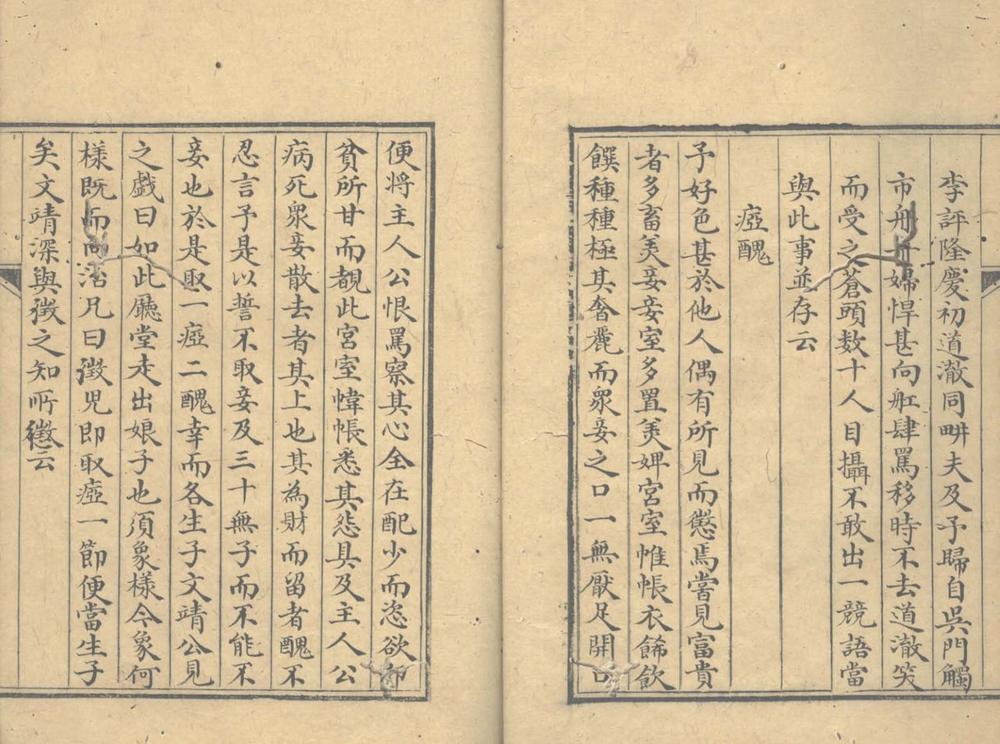 李評隆慶初道澈同畊夫及予歸自吳門觸
市舟舟婦悍甚向舡肆罵移時不去道澈笑
而受之蒼頭数十人目攝不敢出一競語當
與此事並存云
瘂醜
予好色甚於他人偶有所見而懲焉嘗見富貴
者多畜美妾妾室多置美婢宮室帷帳衣餙飲
饌種種極其奢麗而衆妾之口一無厭足開口
便将主人公恨罵察其心全在配少而恣欲却
貧所甘而覩此宮室幃帳悉其恣具及主人公
病死衆妾散去者其上也其為財而留者醜不
忍言予是以誓不取妾及三十無子而不能不
妾也於是取一瘂二醜幸而各生子文靖公見
之戲曰如此廳堂走出娘子也須象樣今象何
樣既而尚治凡曰徴児即取瘂一節便當生子
矣文靖深與徴之知所懲云